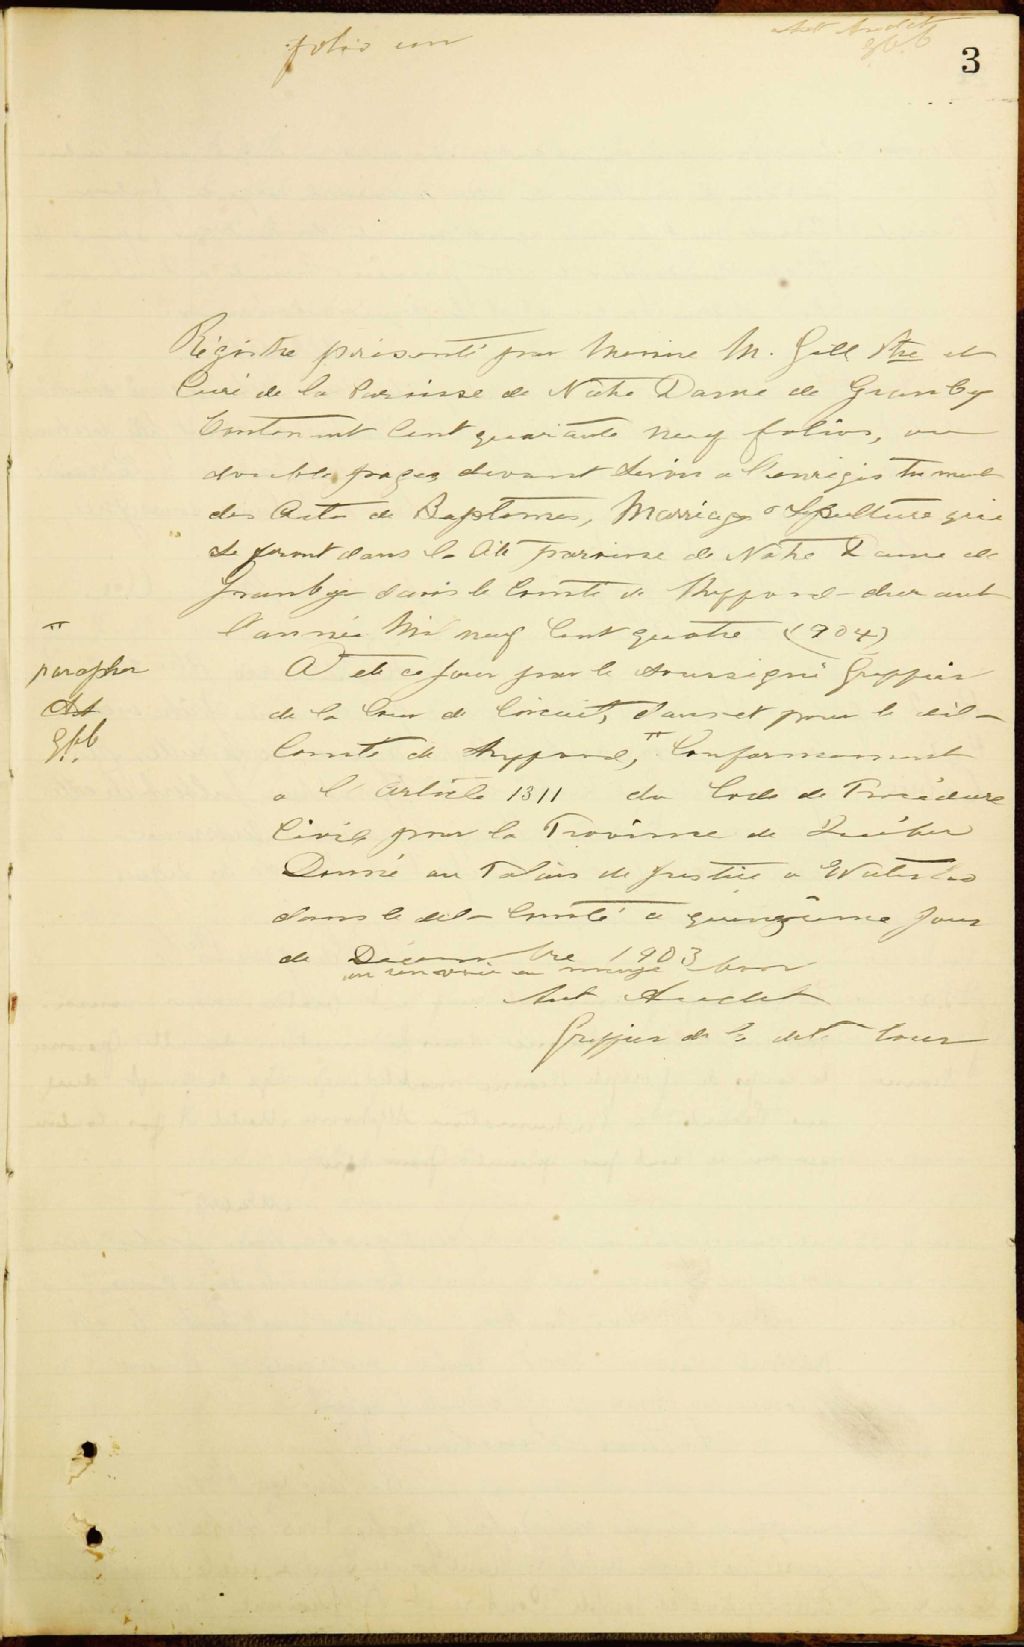 folio un
Ant Audet
G.C.C.
3
Régistre présenté par Messire M. Gill Ptre et
Curé de la Paroisse de Notre Dame de Granby
Contenant Cent quarante neuf folios, ou
double pages devant servir a l'enrégistrement
des Actes de Baptemes, Mariages & Sépulture qui
se feront dans la dite paroisse de Notre Dame de
Granby dans le Comté de Shefford durant
l'année Mil neuf Cent quatre (1904)
A été ce jour par le soussigné Greffier
de la Cour de Circuit, dans et pour le dit
Comté de Shefford, Conformement
a l'Article 1311 du Code de Procédure
Civile pour la Province de Québec
Donné au Palais de Justice a Waterloo
dans le dit Comté ce quinzième jour
de Décembre 1903
un renvoi en marge bon
Ant Audet
Greffier de la dite Cour
paraphé
AA
G.C.C.